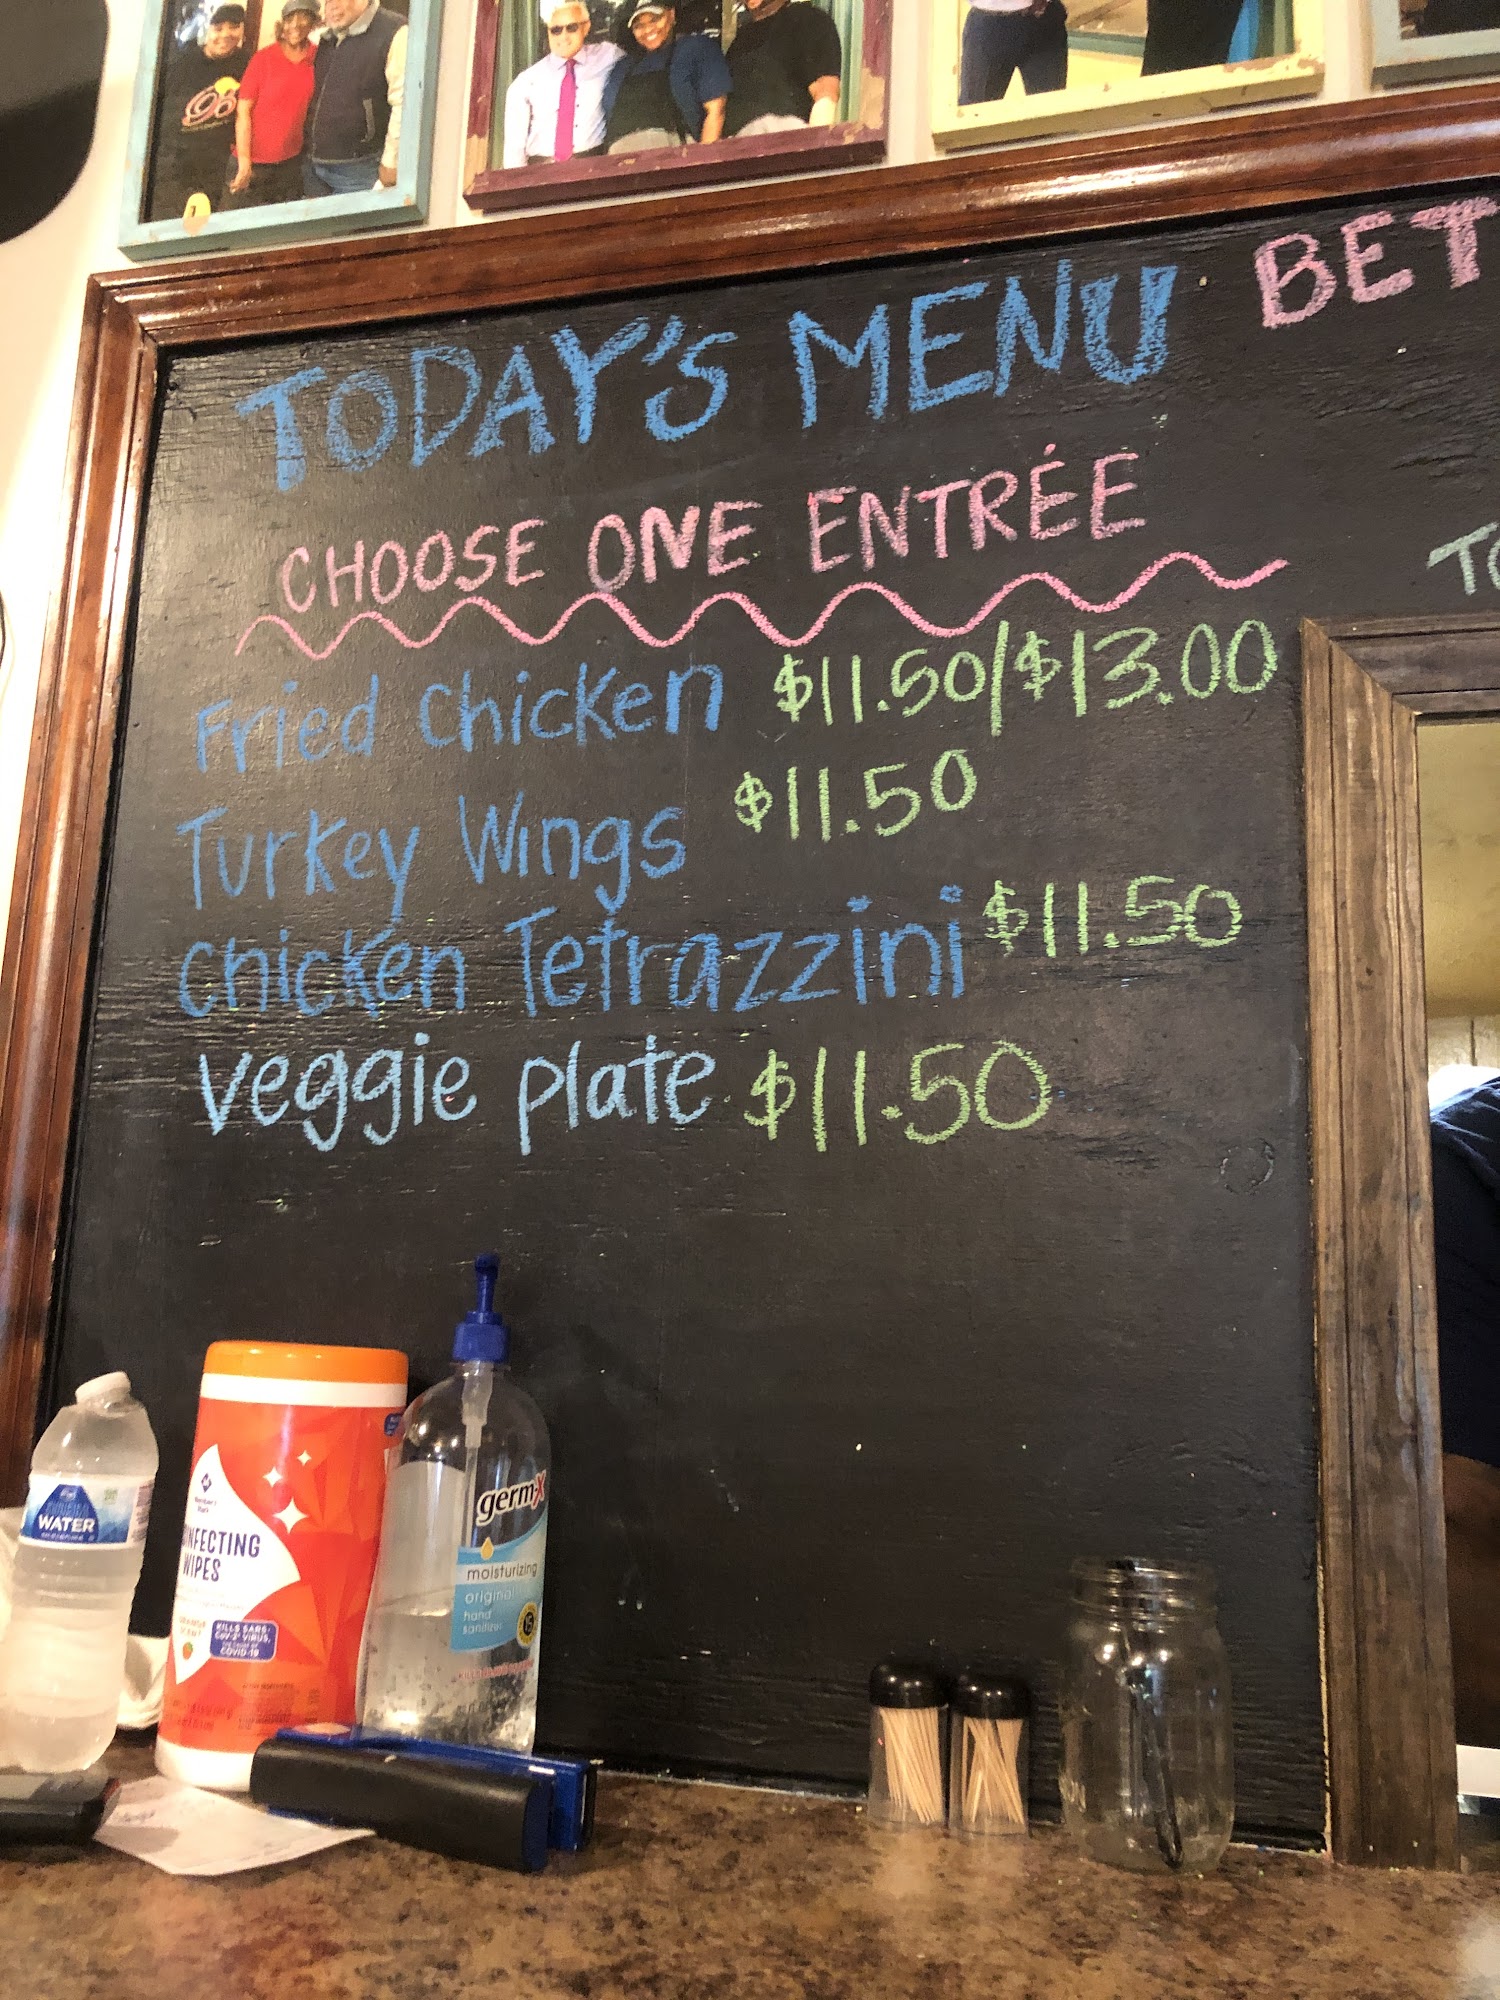 TODAY'S MENU
CHOOSE ONE ENTRÉE
Fried Chicken $11.50/$13.00
Turkey Wings $11.50
Chicken Tetrazzini $11.50
Veggie plate $11.50
BET
TO
WATER
Member's Mark
INFECTING
WIPES
KILLS SARS-
CoV-2 VIRUS,
COVID-19
germ-X
moisturizing
original
hand
sanitizer